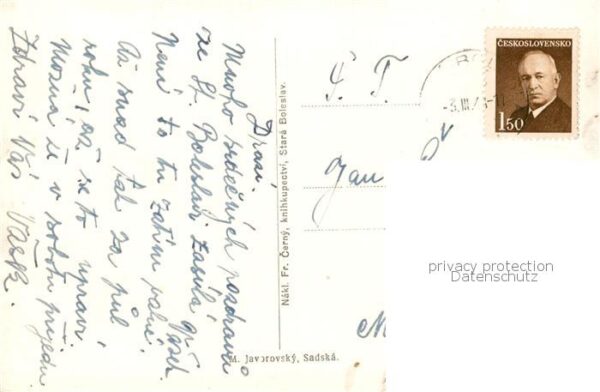 Drazí.
Mnoho srdečných pozdravů
ze St. Boleslavi zasílá Vašek.
Není to tu zatím valné.
Až snad tak za půl
roku, až se to upraví.
Možná že v sobotu přijedu.
Zdraví Vás Vašek.
Nákl. Fr. Černý, knihkupectví, Stará Boleslav.
M. Javorovský, Sadská.
ČESKOSLOVENSKO
1 50
P. T.
Jan
privacy protection
Datenschutz